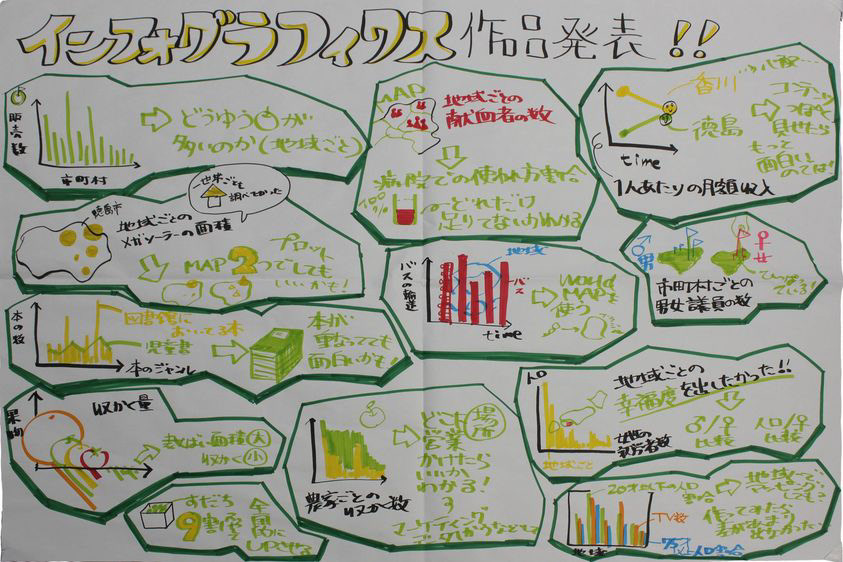 インフォグラフィクス作品発表!!
販売数
市町村
どうゆう
が
多いのか(地域ごと)
MAP
地域ごとの
献血者の数
病院での使われ方割合
100%
どれだけ
足りてないかわかる
香川
徳島
time
1人あたりの月額収入
コンテンツ
つなげて
見せたら
もっと
面白い
のでは!
徳島市
地域ごとの
メガソーラーの面積
調べてよかった
MAP2つでしても
プロット
いいかも!
バスの輸送
地域
バス
time
World
MAPを
使う
男
女
市町村ごとの
男女議員の数
本の数
図書館に
おいてる本
児童書
本のジャンル
本が
重なってても
面白いかも!
果物
収かく量
面積大
収かく小
すだち
9割
全国的に
UP
農家ごとの
収かく数
どこも場所
営業
かけたら
いいか
わかる!
マーケティング
人口
地域ごとの
幸福度を出したかった!!
女性の
就労者数
地域ごと
♂/♀
比較
人口/♀
比較
20才以下の人口
割合
TV数
地域
人口割合
地域で
作ってみたら
差があまり
出なかった